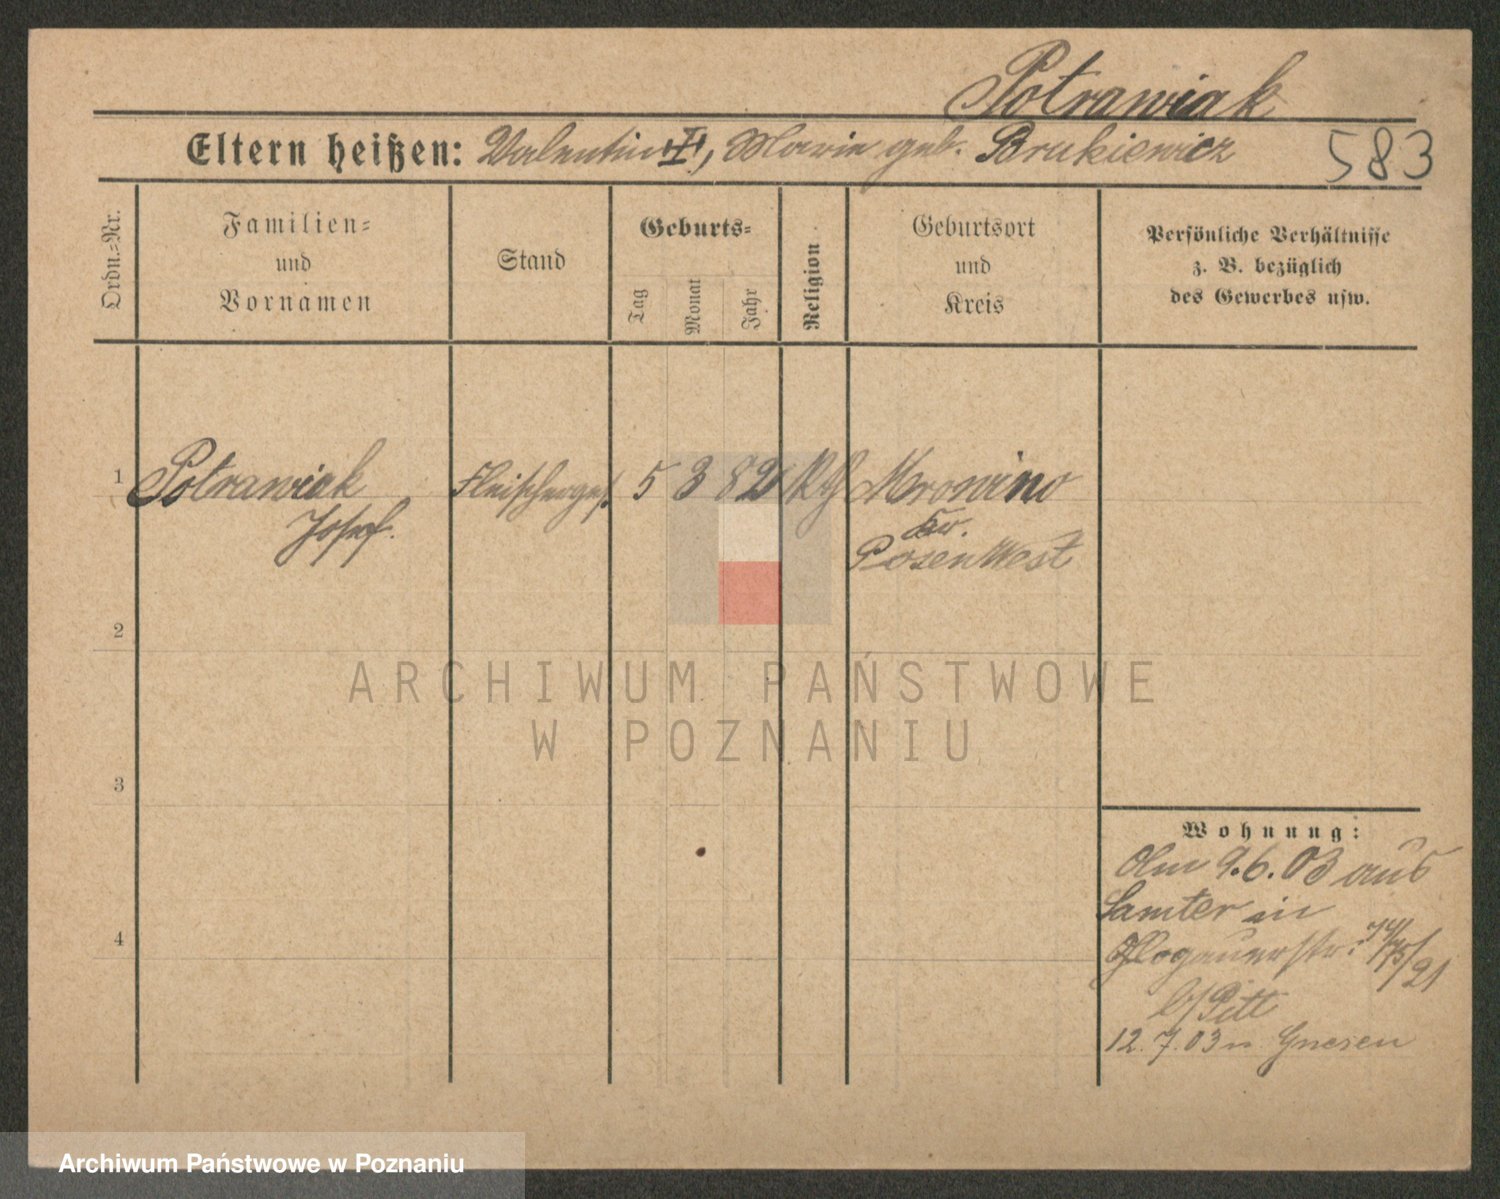 Potrawiak
Eltern heißen: Valentin, Marie geb. Brukiewicz
583
Ordn.-Nr.
Familien-
und
Vornamen
Stand
Geburts-
Tag
Monat
Jahr
Religion
Geburtsort
und
Kreis
Persönliche Verhältnisse
z. B. bezüglich
des Gewerbes usw.
1 Potrawiak Fleischerges. 5 3 82 Kth Mrowino
Josef. Kr.
Posen West
2
ARCHIWUM PAŃSTWOWE
W POZNANIU
3
Wohnung:
Am 9.6.03 aus
Samter in
4
Glogauerstr. 74/75/21
b/Pitt
12.7.03 n. Gnesen
Archiwum Państwowe w Poznaniu